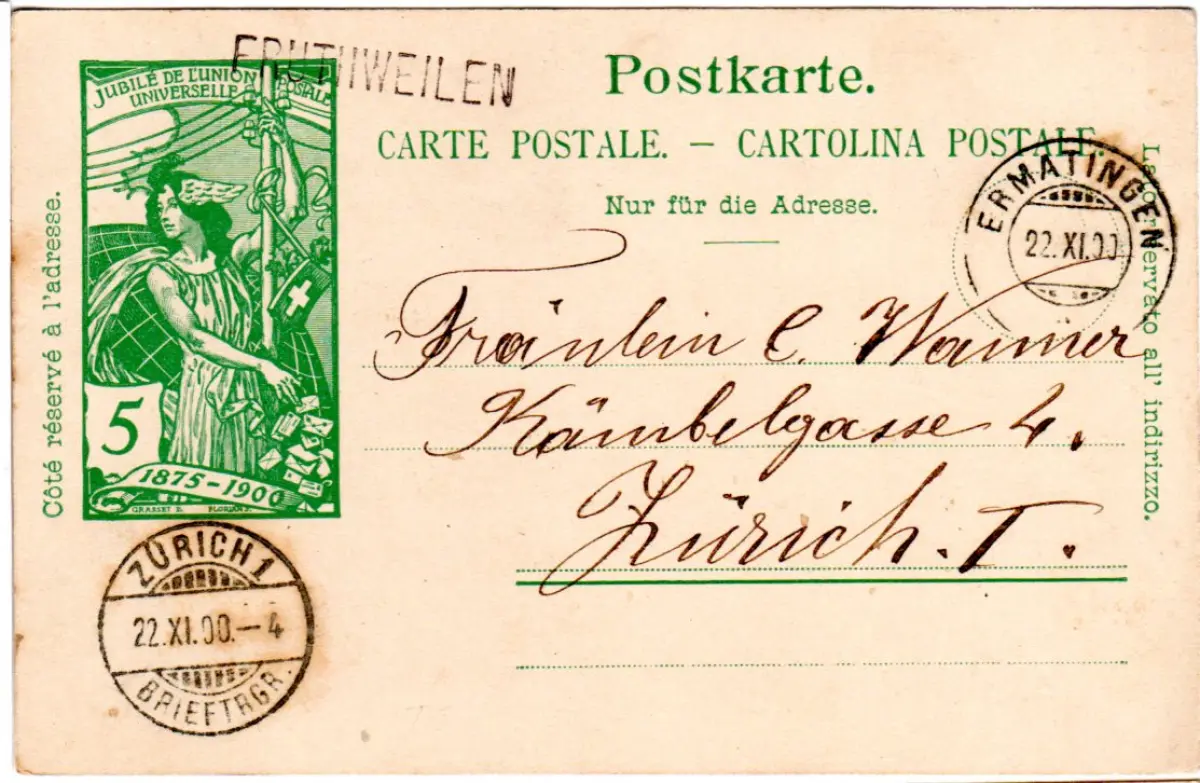 FRUTHWEILEN
JUBILÉ DE L'UNION POSTALE
UNIVERSELLE
Postkarte.
CARTE POSTALE. — CARTOLINA POSTALE.
Nur für die Adresse.
ERMATINGEN
22.XI.00
Côté réservé à l'adresse.
Fräulein C. Wanner
Kämbelgasse 4.
Zürich. I.
all' indirizzo.
5
1875-1900
GRASSET E. FLORIAN
ZÜRICH 1
22.XI.00.-4
BRIEFTRGR.